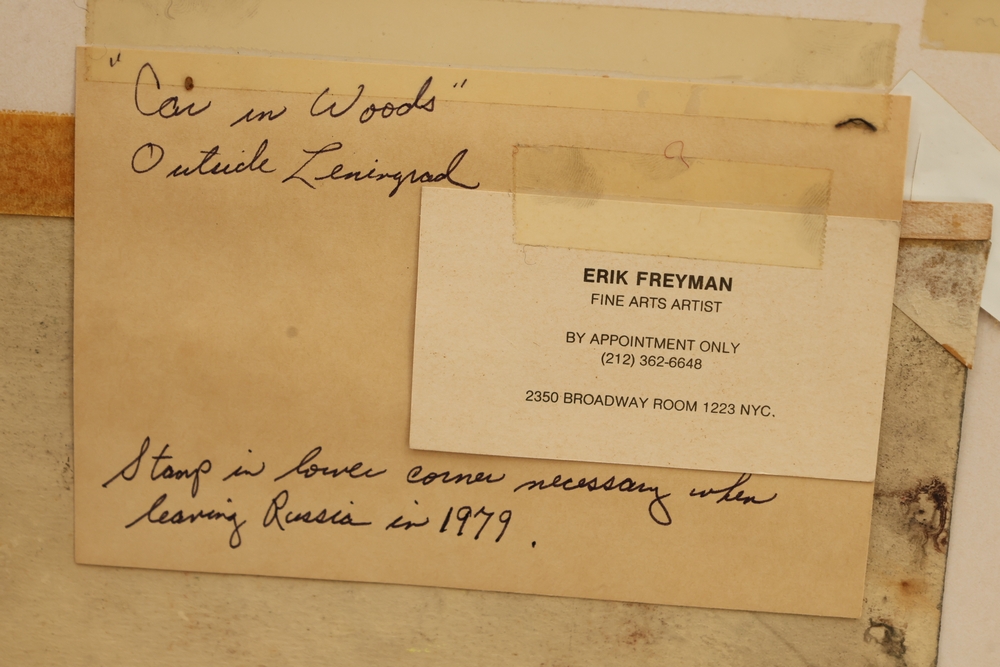 "Car in Woods"
Outside Leningrad
ERIK FREYMAN
FINE ARTS ARTIST
BY APPOINTMENT ONLY
(212) 362-6648
2350 BROADWAY ROOM 1223 NYC.
Stamp in lower corner necessary when
leaving Russia in 1979.